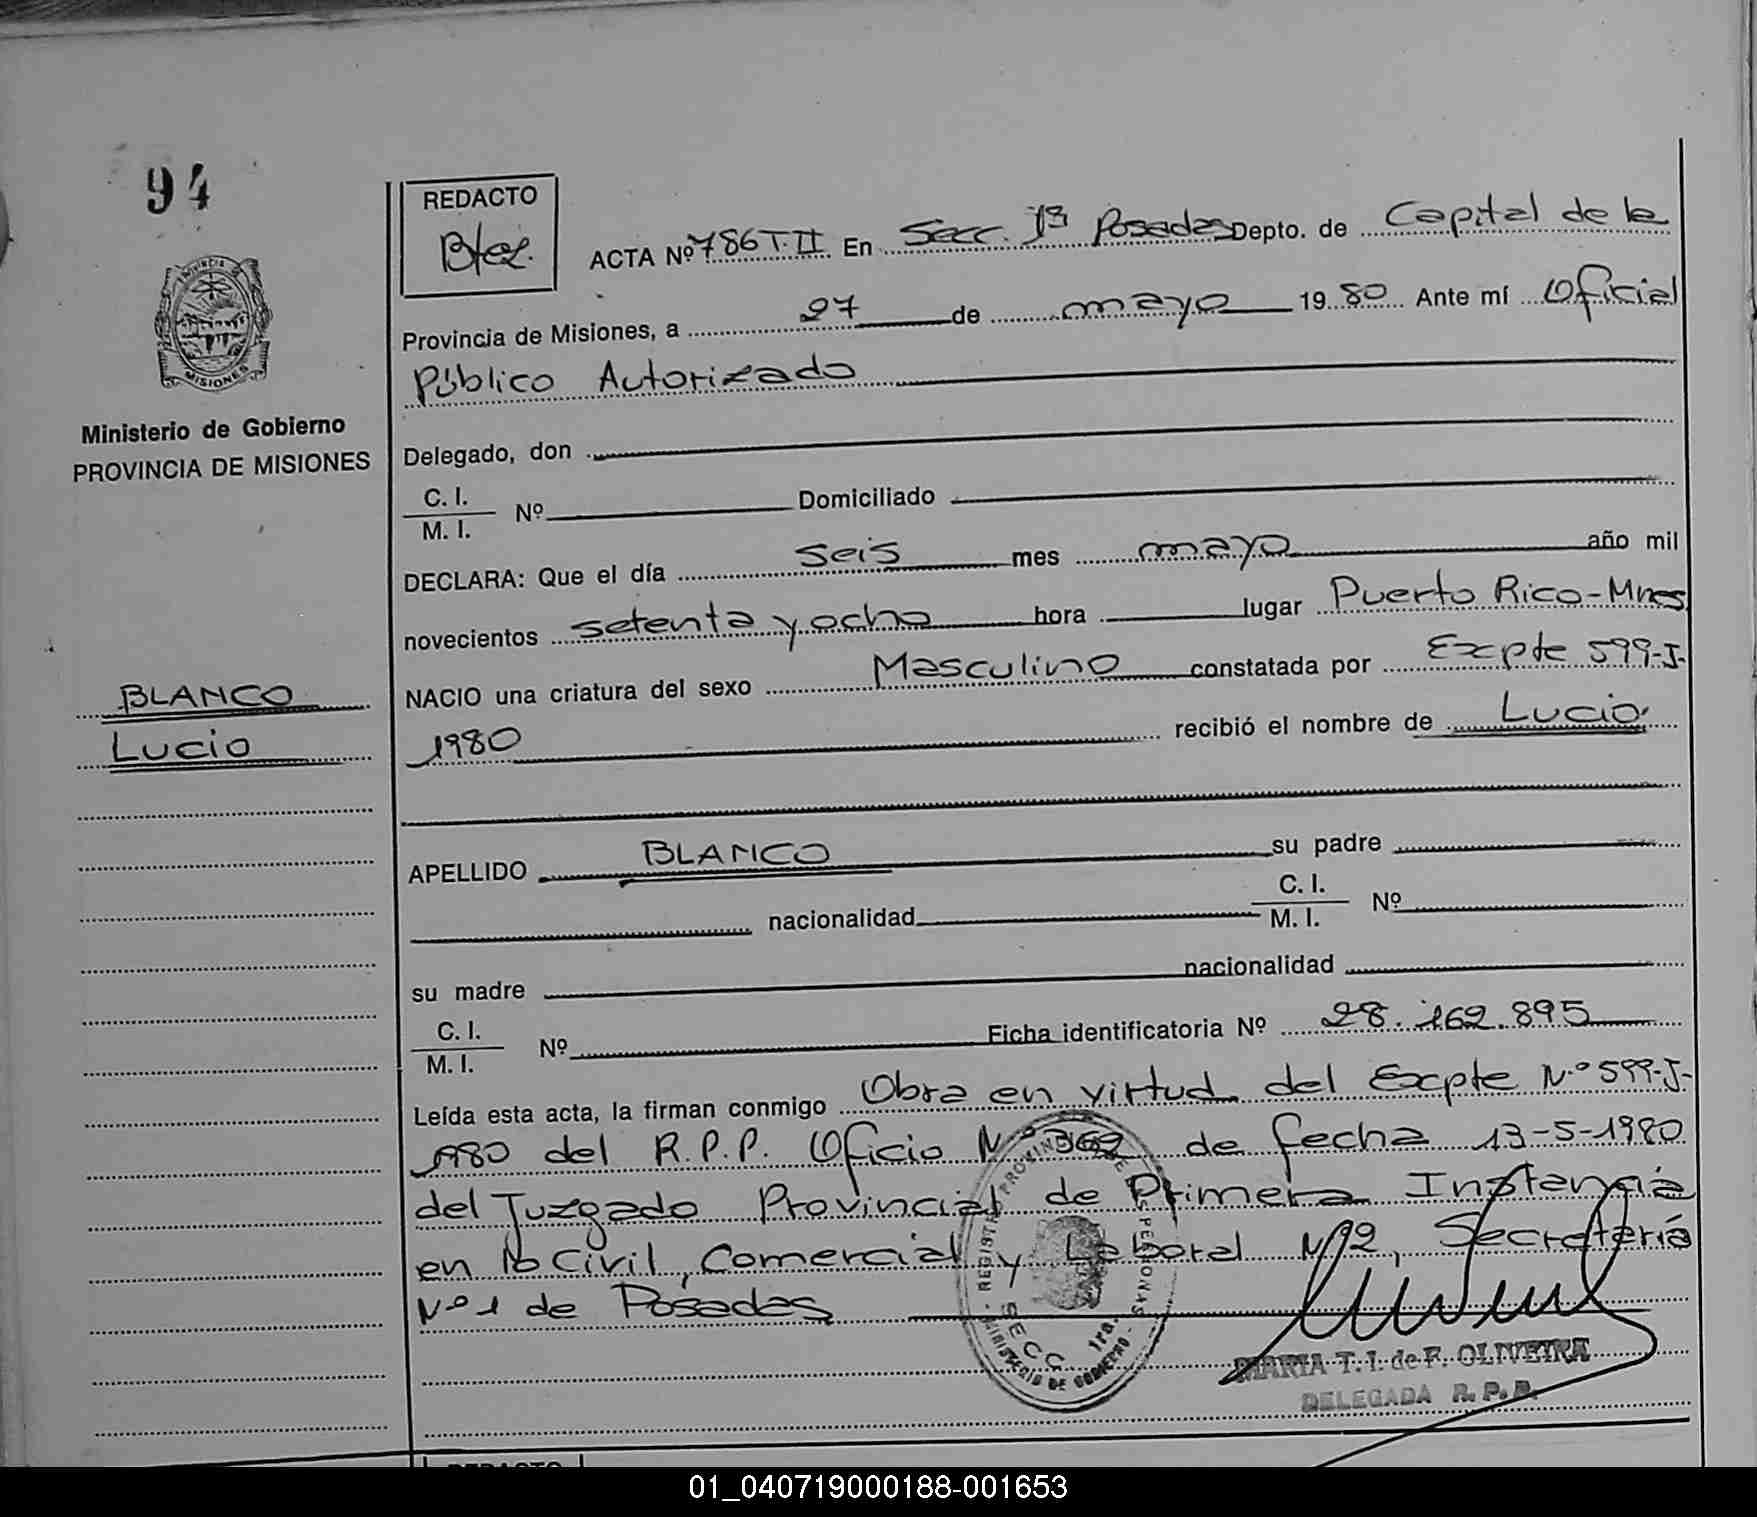 94
REDACTO
ACTA Nº 786 T.II En Secc. 1ª Posadas Depto. de Capital de la
Provincia de Misiones, a 27 de mayo 1980 Ante mí Oficial
Público Autorizado
PROVINCIA
MISIONES
Ministerio de Gobierno
PROVINCIA DE MISIONES
Delegado, don
C. I.
M. I. Nº Domiciliado
DECLARA: Que el día seis mes mayo año mil
novecientos setenta y ocho hora lugar Puerto Rico-Mnes
BLANCO
Lucio
NACIO una criatura del sexo Masculino constatada por Expte 599-J-
1980 recibió el nombre de Lucio
APELLIDO BLANCO su padre
nacionalidad C. I. M. I. Nº
su madre nacionalidad
C. I.
M. I. Nº Ficha identificatoria Nº 28.162.895
Leída esta acta, la firman conmigo Obra en virtud del Expte N.º 599-J-
1980 del R.P.P. Oficio Nº 362 de fecha 13-5-1980
del Juzgado Provincial de Primera Instancia
en lo Civil, Comercial y Laboral Nº2, Secretaría
Nº 1 de Posadas
REGISTRO PROVINCIAL DE PERSONAS
SECC. 1ra.
MINISTERIO DE GOBIERNO
MARIA T. I. de F. OLIVEIRA
DELEGADA R. P. P.
REDACTO
01_040719000188-001653